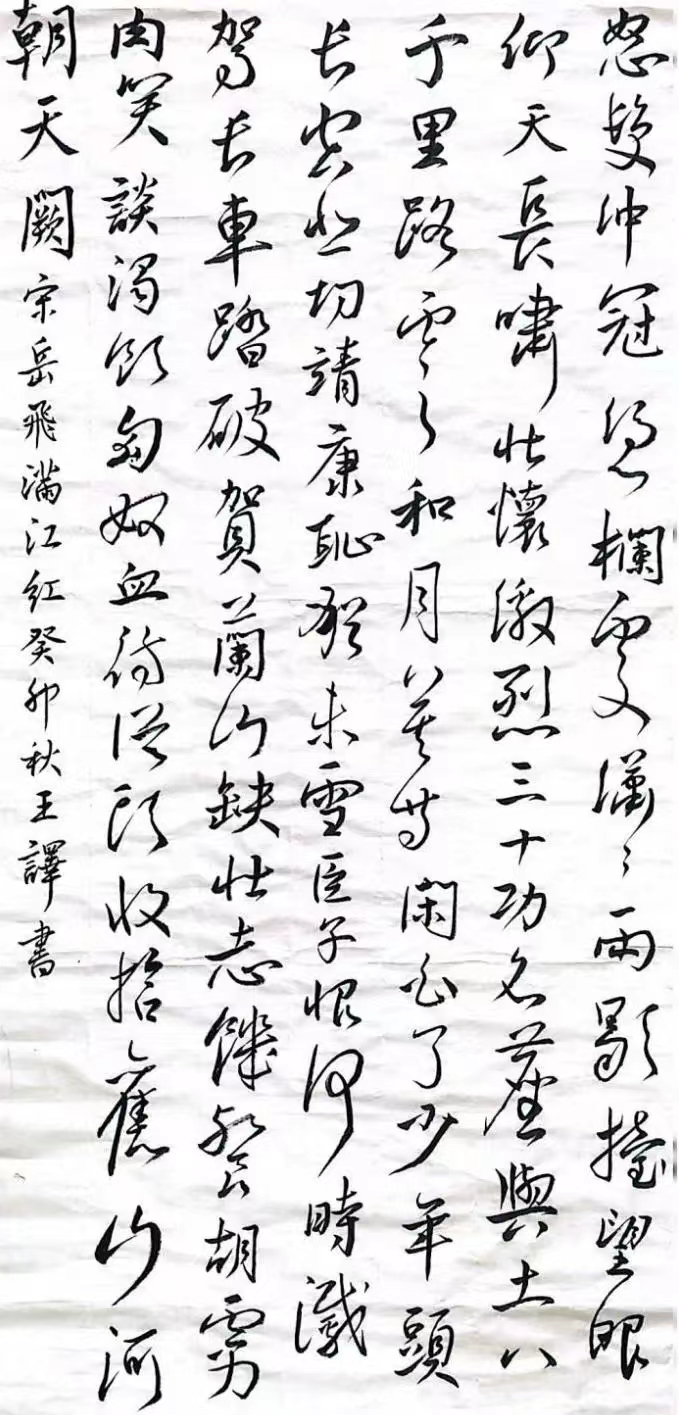 怒髮沖冠憑欄處瀟瀟雨歇擡望眼
仰天長嘯壯懷激烈三十功名塵與土八
千里路雲和月莫等閑白了少年頭
長空悲切靖康恥猶未雪臣子恨何時滅
駕長車踏破賀蘭山缺壯志饑餐胡虜
肉笑談渴飲匈奴血待從頭收拾舊山河
朝天闕宋岳飛滿江紅癸卯秋王譯書